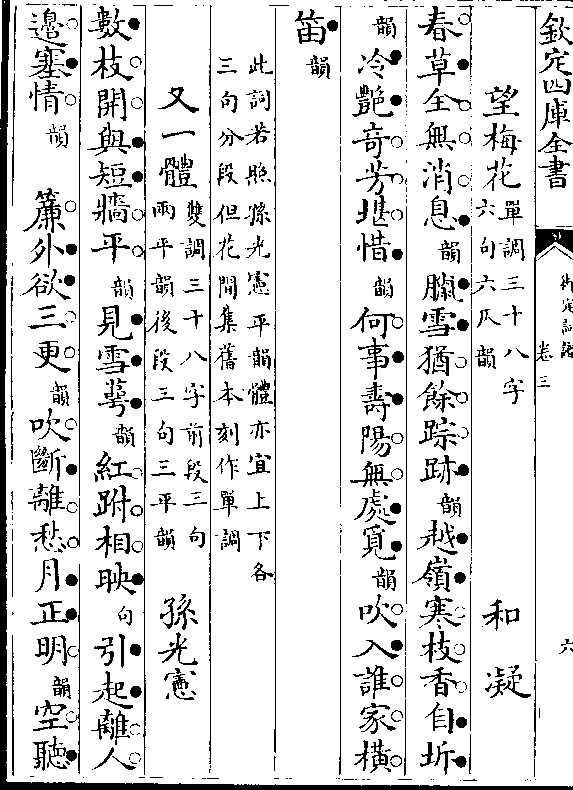 欽定四庫全書
御定詞譜 卷三 六
望梅花 單調三十八字 六句六仄韻 和凝
春草全無消息韻臘雪猶餘踪跡韻越嶺寒枝香自坼
韻冷艷奇芳堪惜韻何事壽陽無處覓韻吹入誰家橫
笛韻
此詞若照孫光憲平韻體亦宜上下各
三句分段但花間集舊本刻作單調
又一體 雙調三十八字前段三句 兩平韻後段三句三平韻 孫光憲
數枝開與短牆平韻見雪萼韻紅跗相映句引起離人
邊塞情韻 簾外欲三更韻吹斷離愁月正明韻空聽